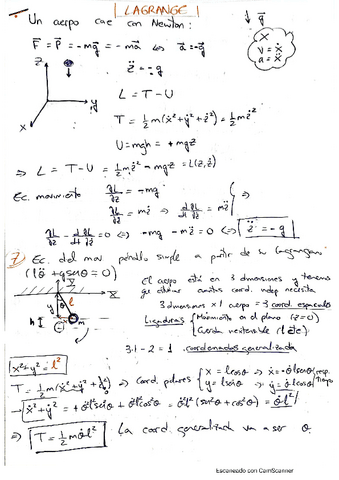 LAGRANGE
Un cuerpo cae con Newton:
↓ g⃗
F⃗ = P⃗ = -mg⃗ = -ma⃗ ⇔ a⃗ = -g⃗
x
v = ẋ
a = ẍ
z
z̈ = -g
y
x
L = T - U
T = 1/2 m(ẋ² + ẏ² + ż²) = 1/2 mż²
U = mgh = +mgz
⇒ L = T - U = 1/2 mż² - mgz = L(z,ż)
Ec. movimiento ∂L/∂z = -mg
∂L/∂ż = mż ⇒ d/dt ∂L/∂ż = mz̈
∂L/∂z - d/dt ∂L/∂ż = 0 ⇔ -mg - mz̈ = 0 ⇔ z̈ = -g
7) Ec. del mov péndulo simple a partir de su Lagrangiana
(lθ̈ + g senθ = 0)
El cuerpo está en 3 dimensiones y tenemos
que coord. indep necesita
3 dimensiones x 1 cuerpo = 3 coord. espaciales
Ligaduras Movimiento en el plano (z=0)
Cuerda inextensible (l cte)
3·1 - 2 = 1 coordenada generalizada
x² + y² = l²
T = 1/2 m(ẋ² + ẏ² + ż²) ⇒ coord. polares
x = l cosθ ⇒ ẋ = -θ̇ l senθ
y = l sinθ ⇒ ẏ = θ̇ l cosθ
resp. tiempo
→ ẋ² + ẏ² = +θ̇²l² sin²θ + θ̇²l² cos²θ = θ̇²l² (sin²θ + cos²θ) = θ̇²l²
⇒ T = 1/2 mθ̇l² La coord. generalizada va a ser θ
Escaneado con CamScanner